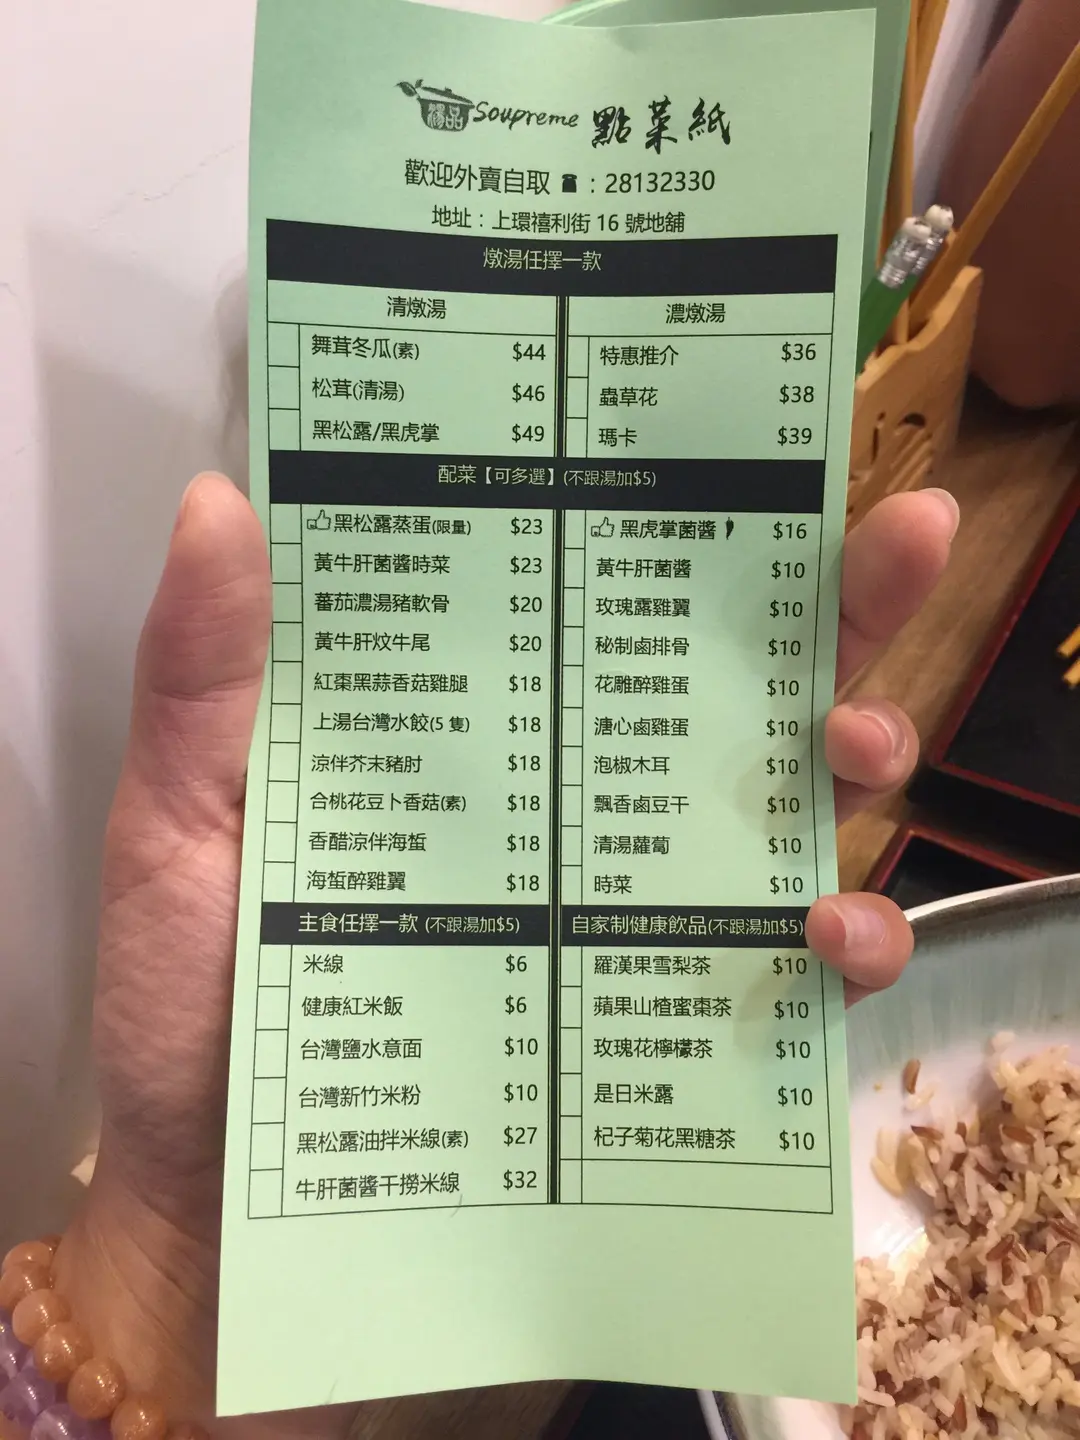 湯品 Soupreme 點菜紙
歡迎外賣自取 ☎ : 28132330
地址 : 上環禧利街 16 號地舖
燉湯任擇一款
清燉湯
舞茸冬瓜(素) $44
松茸(清湯) $46
黑松露/黑虎掌 $49
濃燉湯
特惠推介 $36
蟲草花 $38
瑪卡 $39
配菜【可多選】(不跟湯加$5)
黑松露蒸蛋(限量) $23
黃牛肝菌醬時菜 $23
蕃茄濃湯豬軟骨 $20
黃牛肝炆牛尾 $20
紅棗黑蒜香菇雞腿 $18
上湯台灣水餃(5 隻) $18
涼伴芥末豬肘 $18
合桃花豆卜香菇(素) $18
香醋涼伴海蜇 $18
海蜇醉雞翼 $18
黑虎掌菌醬 $16
黃牛肝菌醬 $10
玫瑰露雞翼 $10
秘制鹵排骨 $10
花雕醉雞蛋 $10
溏心鹵雞蛋 $10
泡椒木耳 $10
飄香鹵豆干 $10
清湯蘿蔔 $10
時菜 $10
主食任擇一款 (不跟湯加$5)
米線 $6
健康紅米飯 $6
台灣鹽水意面 $10
台灣新竹米粉 $10
黑松露油拌米線(素) $27
牛肝菌醬干撈米線 $32
自家制健康飲品(不跟湯加$5)
羅漢果雪梨茶 $10
蘋果山楂蜜棗茶 $10
玫瑰花檸檬茶 $10
是日米露 $10
杞子菊花黑糖茶 $10